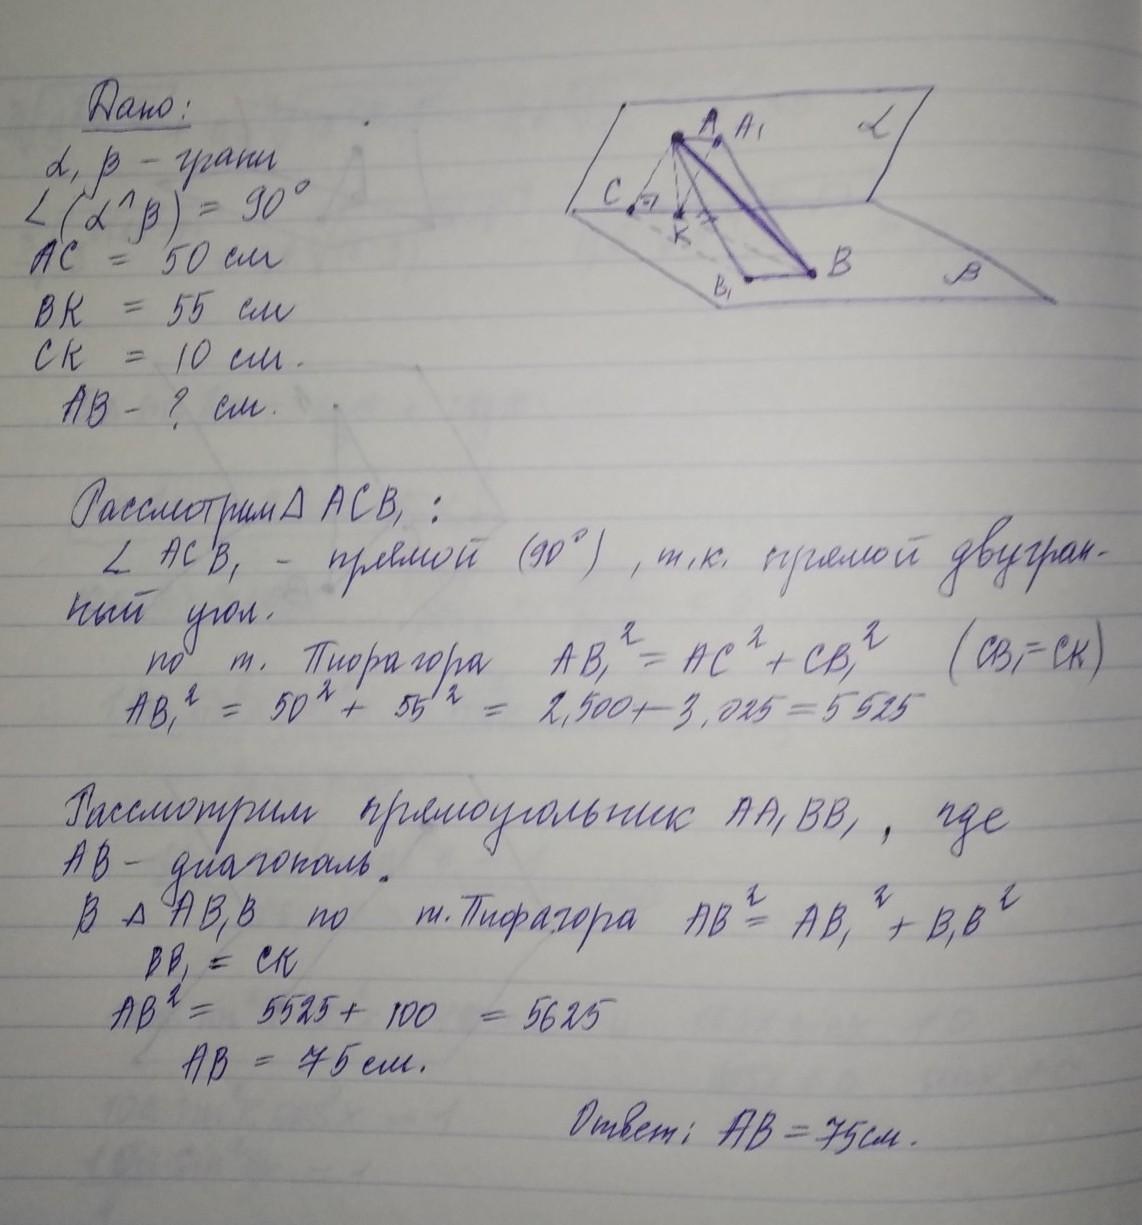 Дано:
α, β - грани
∠(α^β) = 90°
AC = 50 см
BK = 55 см
CK = 10 см.
AB - ? см.
A A₁ α
C
K
B
B₁ β
Рассмотрим Δ ACB₁ :
∠ ACB₁ - прямой (90°), т.к. прямой двугран-
ный угол.
по т. Пифагора AB₁² = AC² + CB₁² (CB₁=CK)
AB₁² = 50² + 55² = 2,500+3,025=5525
Рассмотрим прямоугольник AA₁BB₁, где
AB - диагональ.
В Δ AB₁B по т. Пифагора AB² = AB₁² + B₁B²
BB₁ = CK
AB² = 5525 + 100 = 5625
AB = 75 см.
Ответ: AB = 75см.